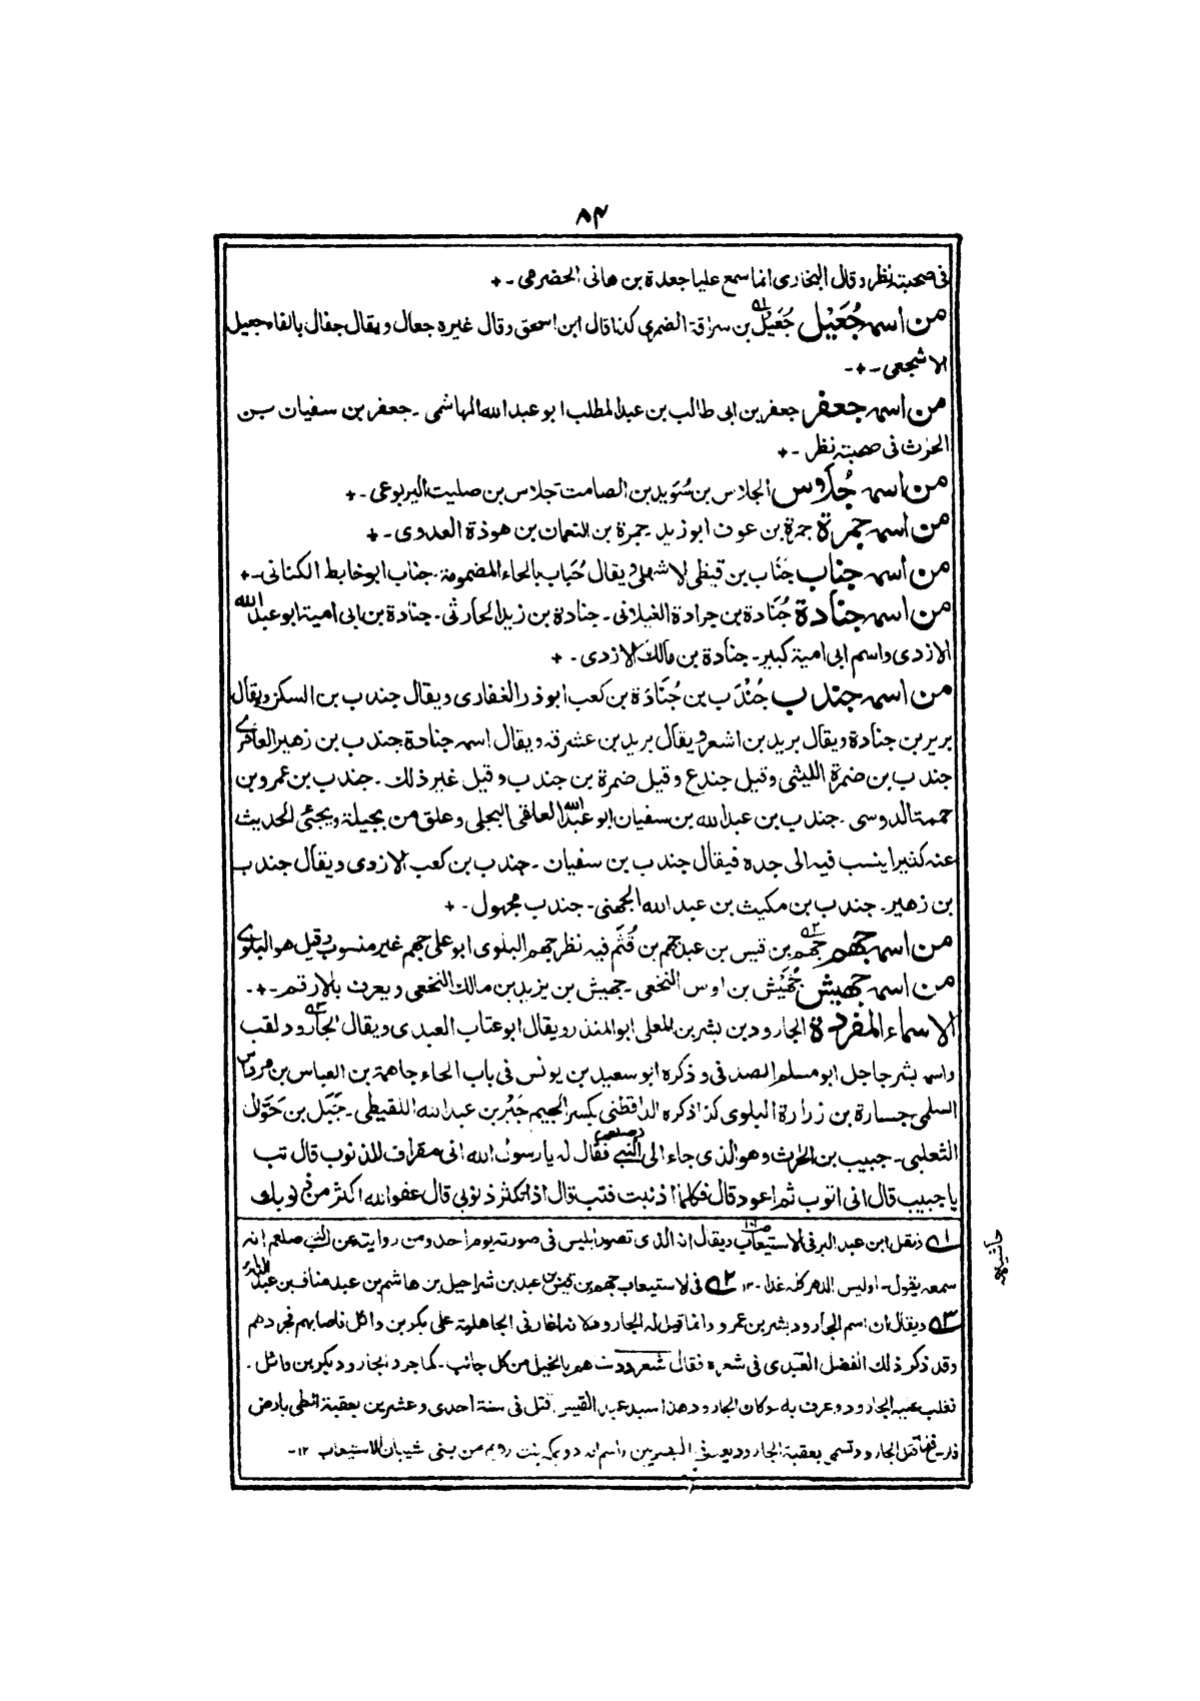 ٨٤
فى صحبته نظر وقال البخارى انما سمع عليا جعدة بن هانى الحضرمى ـ٠
من اسمه جُعَيْل جُعَيْل بن سراقة الضمرى كذا قال ابن اسحق وقال غيره جعال ويقال جفال بالفاء جعيل
الاشجعى ـ٠ـ
من اسمه جعفر جعفر بن ابى طالب بن عبد المطلب ابو عبد الله الهاشمى ـ جعفر بن سفيان بن
الحرث فى صحبته نظر ـ٠
من اسمه جُلاس الجلاس بن سُوَيد بن الصامت جلاس بن صليت اليربوعى ـ٠
من اسمه جمرة جمرة بن عوف ابو زيد ـ جمرة بن النعمان بن هوذة العدوى ـ٠
من اسمه جناب جنَاب بن قيظى الاشهلى ويقال حُبَاب بالحاء المضمومة ـ جناب ابو خابط الكنانى ـ٠
من اسمه جنادة جُنَادة بن جرادة الغيلانى ـ جنادة بن زيد الحارثى ـ جنادة بن ابى امية ابو عبد الله
الازدى واسم ابى امية كبير ـ جنادة بن مالك الازدى ـ٠
من اسمه جندب جُنْدَب بن جُنَادَة بن كعب ابو ذر الغفارى ويقال جندب بن السكن ويقال
برير بن جنادة ويقال بريد بن اشعر ويقال بريد بن عشرقه ويقال اسمه جنادة جندب بن زهير العامرى
جندب بن ضمرة الليثى وقيل جندع وقيل ضمرة بن جندب وقيل غير ذلك ـ جندب بن عمرو بن
حممة الدوسى ـ جندب بن عبد الله بن سفيان ابو عبد الله العلقى البجلى وعلق من بجيلة ويجئ الحديث
عنه كثيرا ينسب فيه الى جده فيقال جندب بن سفيان ـ جندب بن كعب الازدى ويقال جندب
بن زهير ـ جندب بن مكيث بن عبد الله الجهنى ـ جندب مجهول ـ٠
من اسمه جهم جهم بن قيس بن عبد جهم بن قُثَم فيه نظر جهم البلوى ابو على جهم غير منسوب وقيل هو البلوى
من اسمه جهيش جُهَيْش بن اوس النخعى ـ جهيش بن يزيد بن مالك النخعى ويعرف بالارقم ـ٠ـ
الاسماء المفردة الجارود بن بشر بن المعلى ابو المنذر ويقال ابو عتاب العبدى ويقال الجارود لقب
واسمه بشر جاجل ابو مسلم الصدفى وذكره ابو سعيد بن يونس فى باب الحاء جاهمة بن العباس بن مرداس
السلمى جسارة بن زرارة البلوى كذا ذكره الدارقطنى بكسر الجيم جَبْر بن عبد الله القبطى ـ جَبَل بن جَوّال
الثعلبى ـ جبيب بن الحرث وهو الذى جاء الى النبى (صلعم) فقال له يا رسول الله انى مقراف للذنوب قال تب
يا جبيب قال انى اتوب ثم اعود قال فكلما اذنبت فتب قال اذا تكثر ذنوبى قال عفو الله اكثر من ذنوبك
حاشيه
١ه ونقل ابن عبد البر فى الاستيعاب ويقال انه الذى تصور ابليس فى صورته يوم احد ومن روايته عن النبى صلعم انه
سمعه يقول ـ اوليس الدهر كله غدا ـ ١٢ ٢ه فى الاستيعاب جهم بن قيس بن عبد بن شراحيل بن هاشم بن عبد مناف بن عبد الدار
٣ه ويقال ان اسم الجارود بشر بن عمرو وانما قيل له الجارود لانه اغار فى الجاهلية على بكر بن وائل فاصابهم فجردهم
وقد ذكر ذلك الفضل العبدى فى شعره فقال شعر ودسناهم بالخيل من كل جانب ـ كما جرد الجارود بكر بن وائل ـ
فغلب عليه الجارود وعرف به وكان الجارود هذا سيد عبد القيس قتل فى سنة احدى وعشرين بعقبة الطين بارض
فارس فمات قتل الجارود تسمى بعقبة الجارود يعد فى البصريين واسم امه دريمكة بنت رويم من بنى شيبان الاستيعاب ١٢ـ